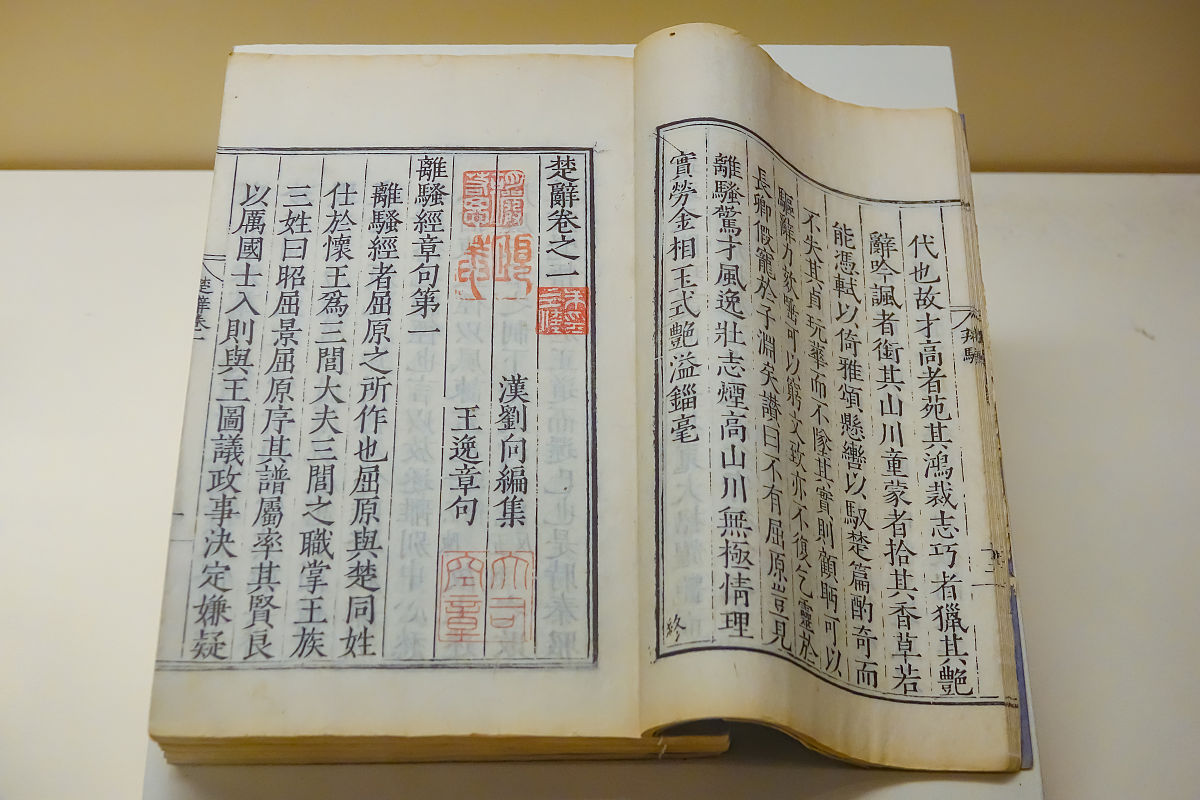 代也故才高者苑其鴻裁志巧者獵其艷
辭吟諷者銜其山川童蒙者拾其香草若
能憑軾以倚雅頌懸轡以馭楚篇酌奇而
不失其真玩華而不墜其實則顧眄可以
驅辭力欬唾可以窮文致亦不復乞靈於
長卿假寵於子淵矣讃曰不有屈原豈見
離騷驚才風逸壯志煙高山川無極情理
實勞金相玉式艷溢錙毫
終
楚辭卷之一
漢劉向編集
王逸章句
離騷經章句第一
離騷經者屈原之所作也屈原與楚同姓
仕於懷王爲三閭大夫三閭之職掌王族
三姓曰昭屈景屈原序其譜屬率其賢良
以厲國士入則與王圖議政事決定嫌疑
楚辭卷一